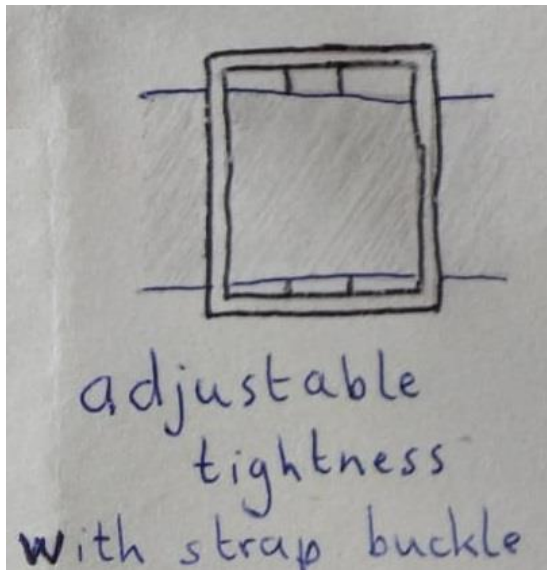 adjustable
tightness
with strap buckle